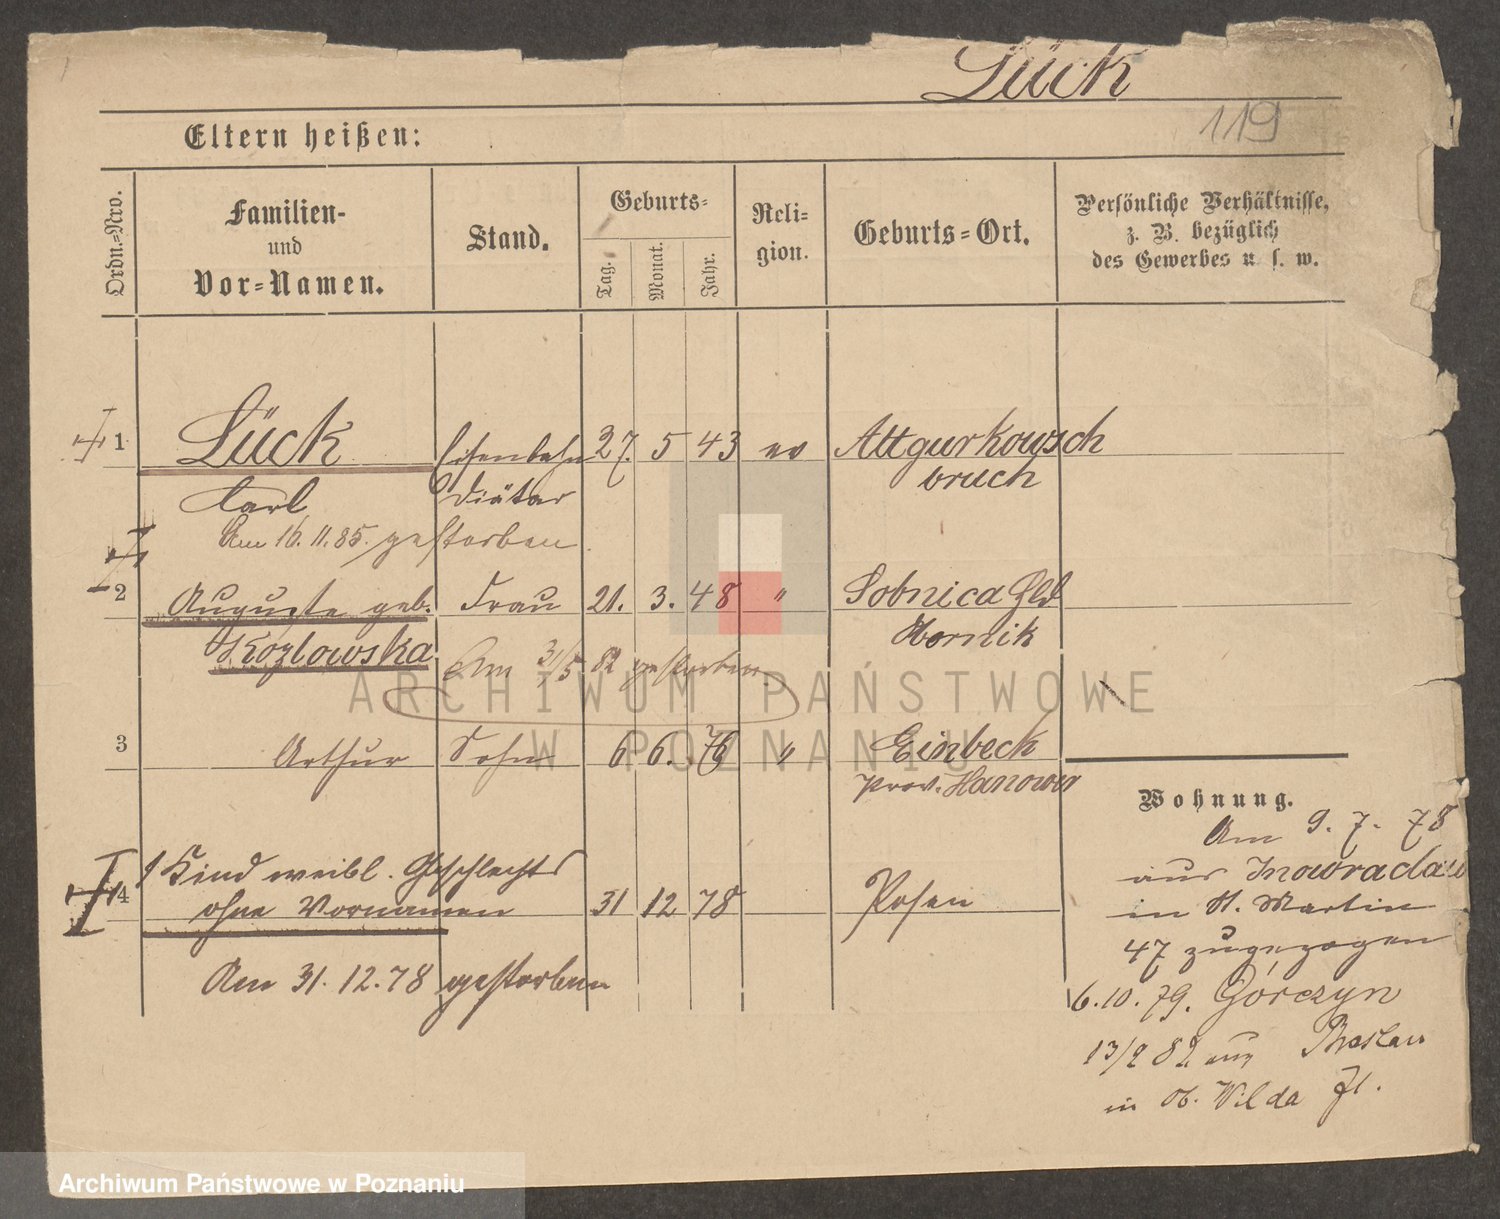 Lück
119
Eltern heißen:
Ordn.=Nro.
Familien-
und
Vor=Namen.
Stand.
Geburts=
Tag.
Monat.
Jahr.
Reli=
gion.
Geburts=Ort.
Persönliche Verhältnisse,
z. B. bezüglich
des Gewerbes u. s. w.
1 Lück Eisenbahn 27. 5 43 ev
bruch
Carl Diätar
Am 16.11.85. gestorben
2 Auguste geb. Frau 21. 3. 48 " Sobnica
Kozlowska
Am 31/5 82 gestorben
3 Arthur Sohn 6 6. 76 " Einbeck
Prov. Hanover
4 1 Kind weibl. Geschlechts
ohne Vornamen 31 12 78 Posen
Am 31.12.78 gestorben
Wohnung.
Am 9. 7. 78
aus Inowraclaw
in St. Martin
47 zugezogen
6.10.79. Górczyn
13/2 82 aus Breslau
in Ob. Wilda
ARCHIWUM PAŃSTWOWE
W POZNANIU
Archiwum Państwowe w Poznaniu